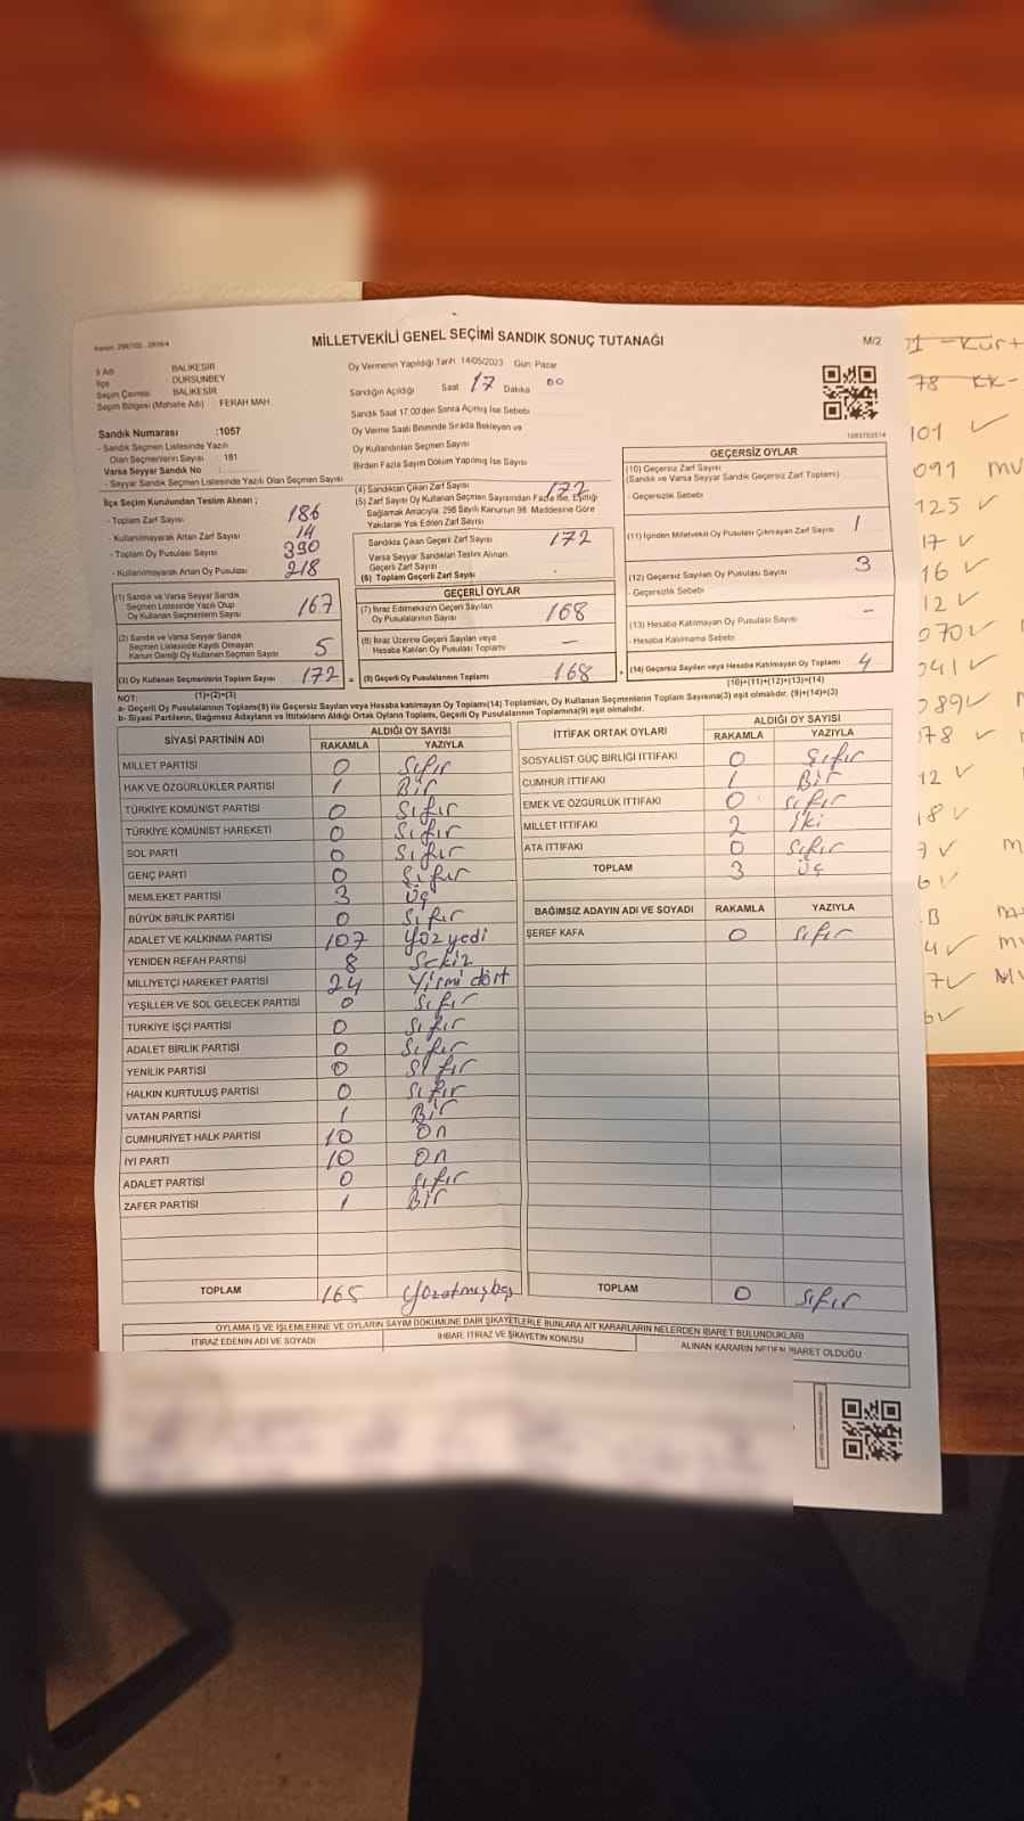 MİLLETVEKİLİ GENEL SEÇİMİ SANDIK SONUÇ TUTANAĞI
M/2
İl Adı BALIKESİR
İlçe : DURSUNBEY
Seçim Çevresi BALIKESİR
Seçim Bölgesi (Mahalle Adı) : FERAH MAH.
Sandık Numarası :1057
- Sandık Seçmen Listesinde Yazılı
Olan Seçmenlerin Sayısı : 181
Varsa Seyyar Sandık No
- Seyyar Sandık Seçmen Listesinde Yazılı Olan Seçmen Sayısı
Oy Vermenin Yapıldığı Tarih 14/05/2023 Gün: Pazar
Sandığın Açıldığı Saat 17 Dakika 00
Sandık Saat 17.00'den Sonra Açılmış İse Sebebi
Oy Verme Saati Bitiminde Sırada Bekleyen ve
Oy Kullandırılan Seçmen Sayısı
Birden Fazla Sayım Döküm Yapılmış İse Sayısı
İlçe Seçim Kurulundan Teslim Alınan ;
- Toplam Zarf Sayısı 186
- Kullanılmayarak Artan Zarf Sayısı 14
- Toplam Oy Pusulası Sayısı 390
- Kullanılmayarak Artan Oy Pusulası 218
(1) Sandık ve Varsa Seyyar Sandık
Seçmen Listesinde Yazılı Olup
Oy Kullanan Seçmenlerin Sayısı 167
(2) Sandık ve Varsa Seyyar Sandık
Seçmen Listesinde Kaydı Olmayan
Kanun Gereği Oy Kullanan Seçmen Sayısı 5
(3) Oy Kullanan Seçmenlerin Toplam Sayısı 172
(1)+(2)=(3)
(4) Sandıktan Çıkan Zarf Sayısı 172
(5) Zarf Sayısı Oy Kullanan Seçmen Sayısından Fazla İse, Eşitliği
Sağlamak Amacıyla; 298 Sayılı Kanunun 98. Maddesine Göre
Yakılarak Yok Edilen Zarf Sayısı
Sandıkta Çıkan Geçerli Zarf Sayısı 172
Varsa Seyyar Sandıktan Teslim Alınan
Geçerli Zarf Sayısı
(6) Toplam Geçerli Zarf Sayısı
GEÇERLİ OYLAR
(7) İtiraz Edilmeksizin Geçerli Sayılan
Oy Pusulalarının Sayısı 168
(8) İtiraz Üzerine Geçerli Sayılan veya
Hesaba Katılan Oy Pusulası Toplamı —
(9) Geçerli Oy Pusulalarının Toplamı 168
GEÇERSİZ OYLAR
(10) Geçersiz Zarf Sayısı
(Sandık ve Varsa Seyyar Sandık Geçersiz Zarf Toplamı)
- Geçersizlik Sebebi
(11) İçinden Milletvekili Oy Pusulası Çıkmayan Zarf Sayısı 1
(12) Geçersiz Sayılan Oy Pusulası Sayısı 3
- Geçersizlik Sebebi
(13) Hesaba Katılmayan Oy Pusulası Sayısı —
- Hesaba Katılmama Sebebi
(14) Geçersiz Sayılan veya Hesaba Katılmayan Oy Toplamı 4
(10)+(11)+(12)+(13)=(14)
NOT:
a- Geçerli Oy Pusulalarının Toplamı(9) ile Geçersiz Sayılan veya Hesaba katılmayan Oy Toplamı(14) Toplamları, Oy Kullanan Seçmenlerin Toplam Sayısına(3) eşit olmalıdır. (9)+(14)=(3)
b- Siyasi Partilerin, Bağımsız Adayların ve İttifakların Aldığı Ortak Oyların Toplamı, Geçerli Oy Pusulalarının Toplamına(9) eşit olmalıdır.
SİYASİ PARTİNİN ADI ALDIĞI OY SAYISI
RAKAMLA YAZIYLA
MİLLET PARTİSİ 0 Sıfır
HAK VE ÖZGÜRLÜKLER PARTİSİ 1 Bir
TÜRKİYE KOMÜNİST PARTİSİ 0 Sıfır
TÜRKİYE KOMÜNİST HAREKETİ 0 Sıfır
SOL PARTİ 0 Sıfır
GENÇ PARTİ 0 Sıfır
MEMLEKET PARTİSİ 3 Üç
BÜYÜK BİRLİK PARTİSİ 0 Sıfır
ADALET VE KALKINMA PARTİSİ 107 Yüz yedi
YENİDEN REFAH PARTİSİ 8 Sekiz
MİLLİYETÇİ HAREKET PARTİSİ 24 Yirmi dört
YEŞİLLER VE SOL GELECEK PARTİSİ 0 Sıfır
TÜRKİYE İŞÇİ PARTİSİ 0 Sıfır
ADALET BİRLİK PARTİSİ 0 Sıfır
YENİLİK PARTİSİ 0 Sıfır
HALKIN KURTULUŞ PARTİSİ 0 Sıfır
VATAN PARTİSİ 1 Bir
CUMHURİYET HALK PARTİSİ 10 On
İYİ PARTİ 10 On
ADALET PARTİSİ 0 Sıfır
ZAFER PARTİSİ 1 Bir
TOPLAM 165 Yüzatmışbeş
İTTİFAK ORTAK OYLARI ALDIĞI OY SAYISI
RAKAMLA YAZIYLA
SOSYALİST GÜÇ BİRLİĞİ İTTİFAKI 0 Sıfır
CUMHUR İTTİFAKI 1 Bir
EMEK VE ÖZGÜRLÜK İTTİFAKI 0 Sıfır
MİLLET İTTİFAKI 2 İki
ATA İTTİFAKI 0 Sıfır
TOPLAM 3 Üç
BAĞIMSIZ ADAYIN ADI VE SOYADI RAKAMLA YAZIYLA
ŞEREF KAFA 0 Sıfır
TOPLAM 0 Sıfır
OYLAMA İŞ VE İŞLEMLERİNE VE OYLARIN SAYIM DÖKÜMÜNE DAİR ŞİKAYETLERLE BUNLARA AİT KARARLARIN NELERDEN İBARET BULUNDUKLARI
İTİRAZ EDENİN ADI VE SOYADI İHBAR, İTİRAZ VE ŞİKAYETİN KONUSU ALINAN KARARIN NEDEN İBARET OLDUĞU
78 KK-
101 ✓
091 MV
125 ✓
17 ✓
16 ✓
12 ✓
070 ✓
041 ✓
089 ✓
78 ✓
12 ✓
18 ✓
7 ✓
6 ✓
4 ✓
7 ✓ MV
6 ✓